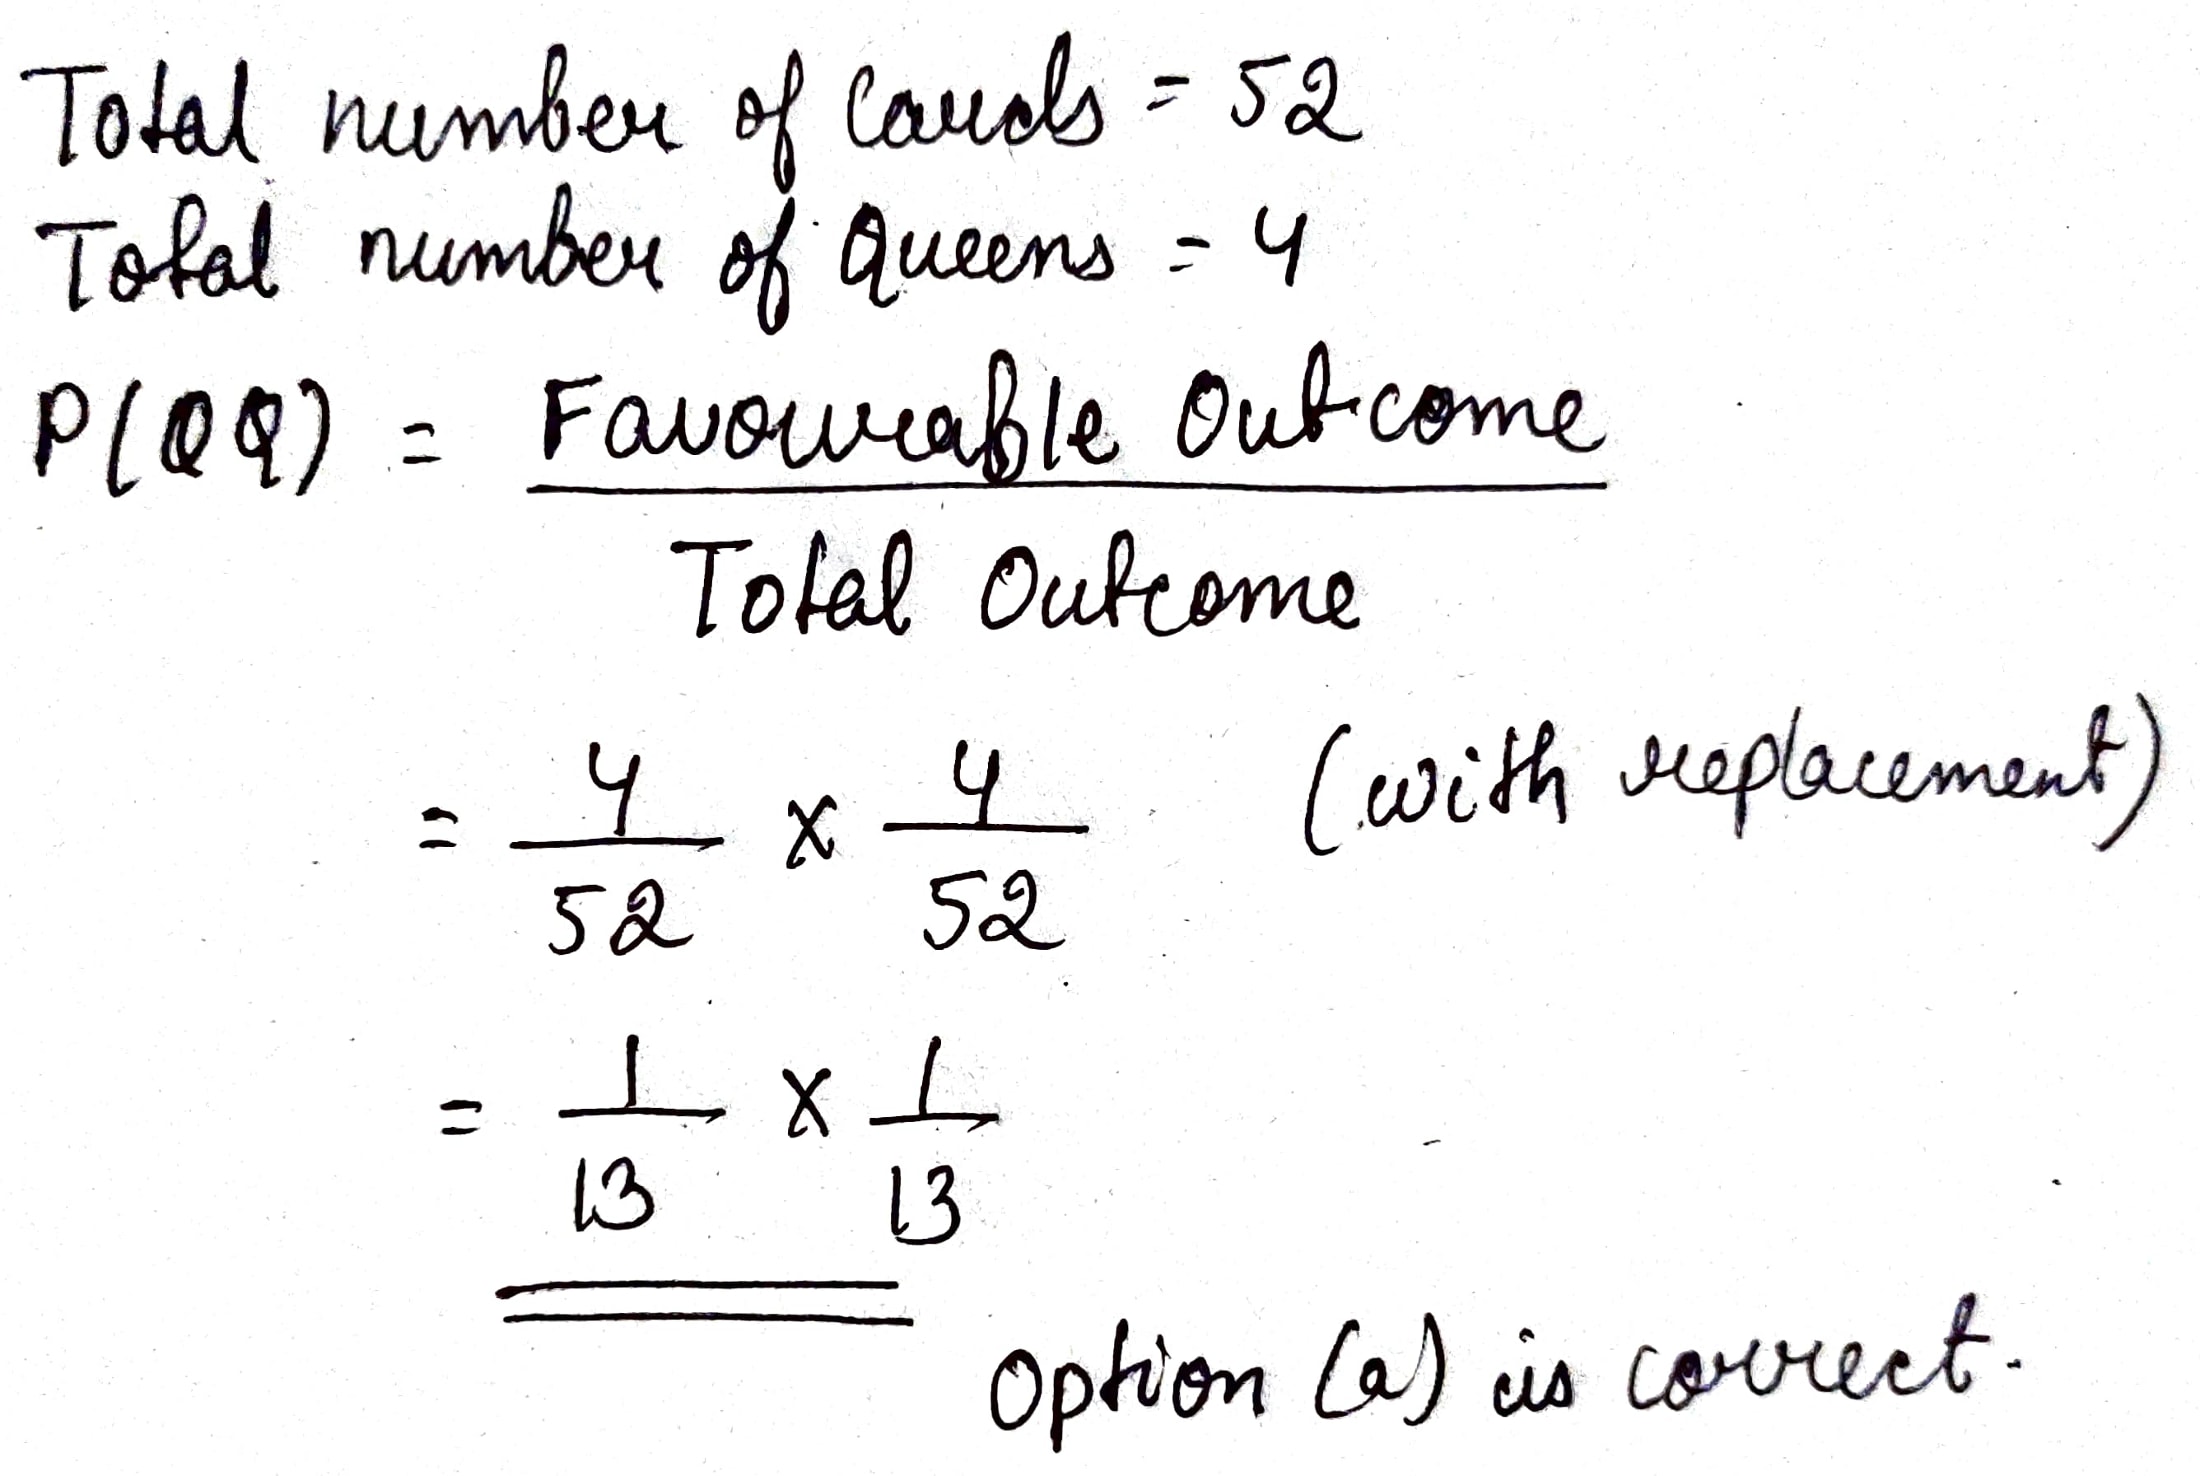 Total number of Cards = 52
Total number of Queens = 4
P(QQ) = Favourable Outcome
Total Outcome
= 4/52 × 4/52 (with replacement)
= 1/13 × 1/13
Option (a) is correct.